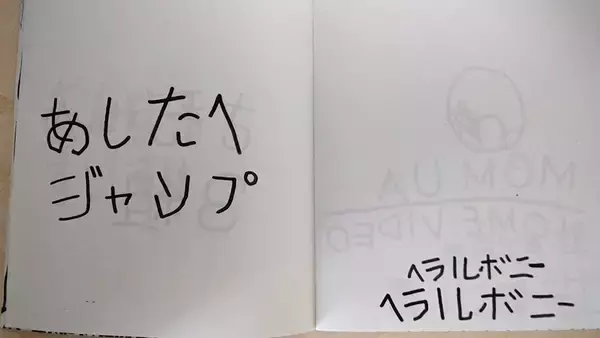 あしたへ
ジャンプ
ヘラルボニー
ヘラルボニー